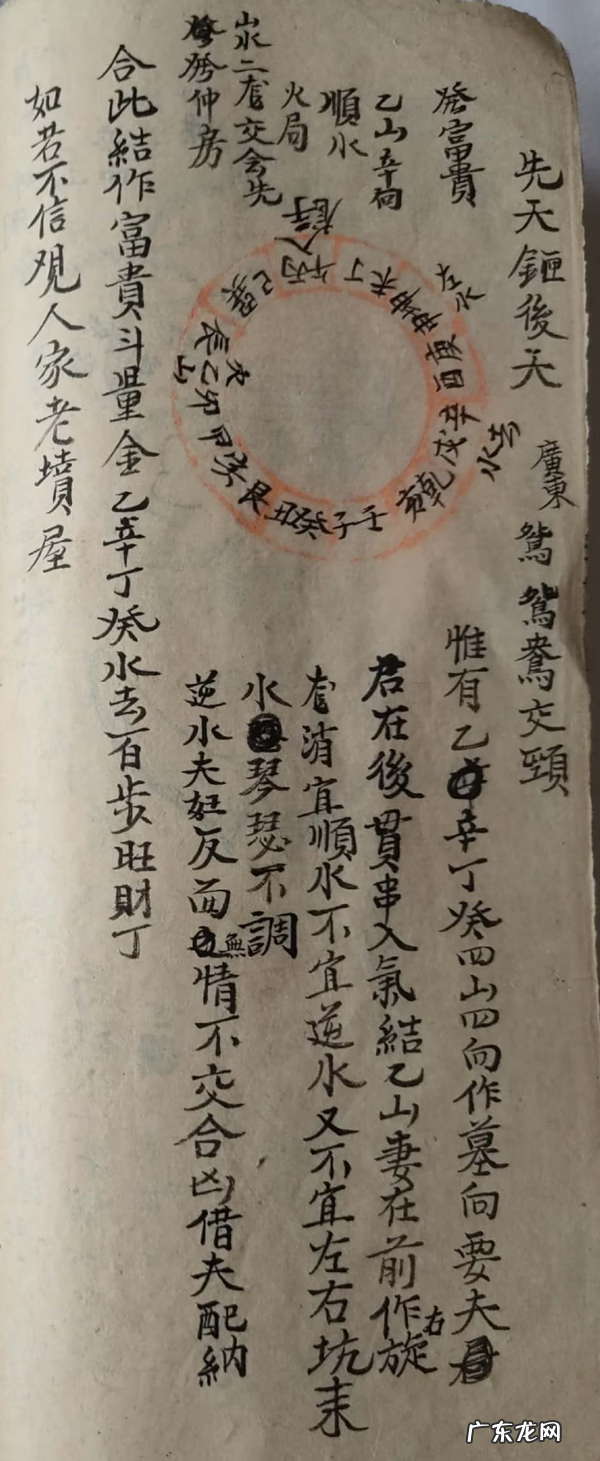 先天鉔後天 廣東 鴛鴦交頸
發富貴
乙山辛向
順水
火局
山水二套交会先
發仲房
惟有乙辛丁癸四山四向作墓向要夫
君在後貫串入氣結乙山妻在前作右旋
套消宜順水不宜逆水又不宜左右坑来
水琴瑟不調
逆水夫妊反面無情不交合凶借夫配納
合此結作富貴斗量金乙辛丁癸水去百步旺財丁
如若不信观人家老墳屋
巽巳丙午丁未坤申庚酉辛戌乾亥壬子癸丑艮寅甲卯乙辰
广东龙网